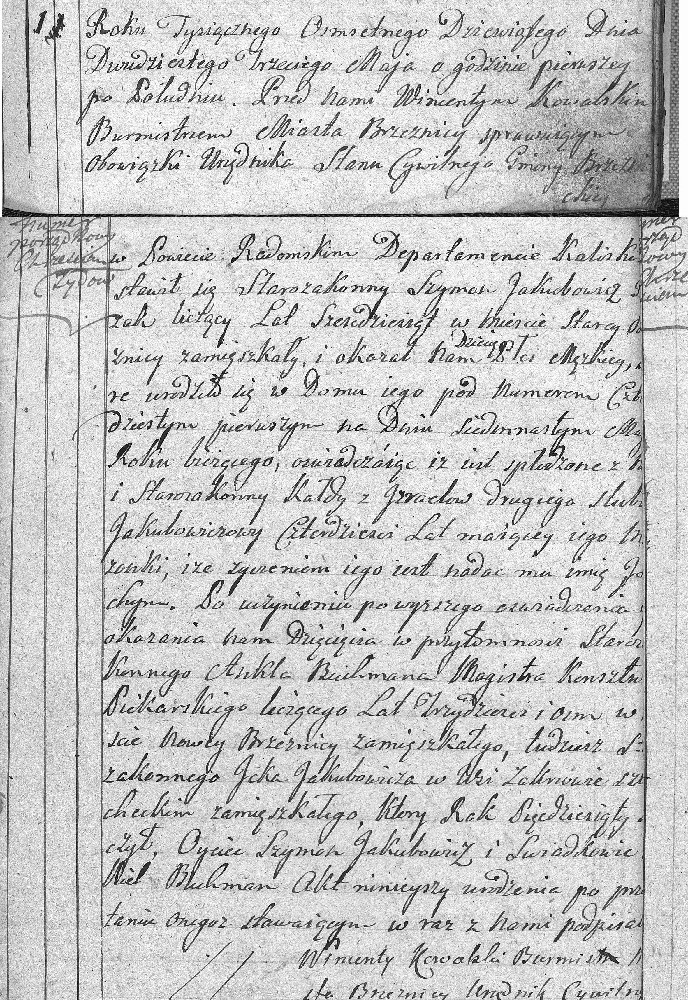 1
Roku Tysiącznego Osmsetnego Dziewiątego Dnia
Dwudziestego trzeciego Maja o godzinie pierwszey
po Południu. Przed Nami Wincentym Kowalskim
Burmistrzem Miasta Brzeznicy sprawuiącym
Obowiązki Urzędnika Stanu Cywilnego Gminy Brzez
ckiey
Numer
porządkowy
Żydów
w Powiecie Radomskim Departamencie Kalisk
stawił się Starozakonny Szymon Jakubowicz
zak liczący Lat Szescdziesiąt w miescie Starey
znicy zamięszkały, i okazał Nam Dziecię Płci Męzkiey,
re urodziło się w Domu iego pod Numerem Czt
dziestym pierwszym na Dniu siedemnastym Ma
Roku bieżącego, oswiadczaiąc iż iest spłodzone z
i Starozakonny Kałdy z Izraelow drugiego slub
Jakubowiczowy Czterdziesci Lat maiącey iego
żonki, i że zyczeniem iego iest nadać mu imię Jo
chym. Po uczynieniu powyzszego oswiadczenia
okazania nam Dziecięcia w przytomnosci Staroz
konnego Ankla Buchmana Magistra Konsztu
Piekarskiego liczącego Lat Trzydziesci i osm w
scie Nowey Brzeznicy zamięszkałego, tudziesz S
zakonnego Icka Jakubowicza w Wsi Zakrzowie szl
checkim zamięszkałego, ktory Rok Pięcdziesiąty
czył, Oyciec Szymon Jakubowicz i Swiadkowie
Buchman Akt ninieyszy urodzenia po prze
taniu onegoz stawaiącym w raz z Nami podpisał
Wincenty Kowalski Burmistrz
Brzeznicy Urzędnik Cywiln